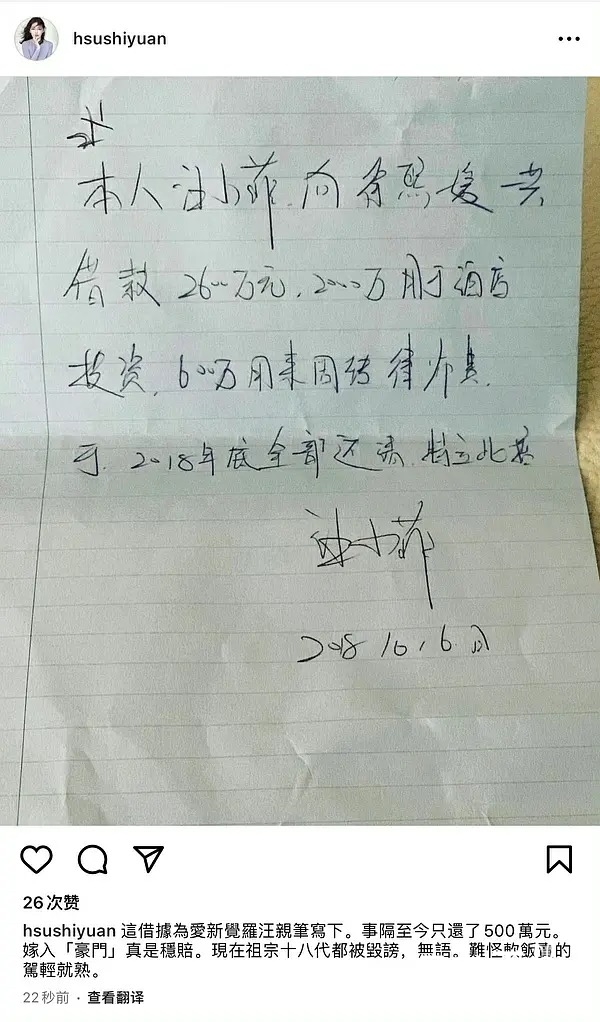 hsushiyuan
本人汪小菲.向徐熙媛共
借款2600万元.2000万用于酒店
投资.600万用来周转律师费.
于.2018年底全部还清.特立此据
汪小菲
2018 10,6日
26次赞
hsushiyuan 這借據為愛新覺羅汪親筆寫下。事隔至今只還了500萬元。
嫁入「豪門」真是穩賠。現在祖宗十八代都被毀謗，無語。難怪軟飯的
駕輕就熟。
22秒前 · 查看翻译